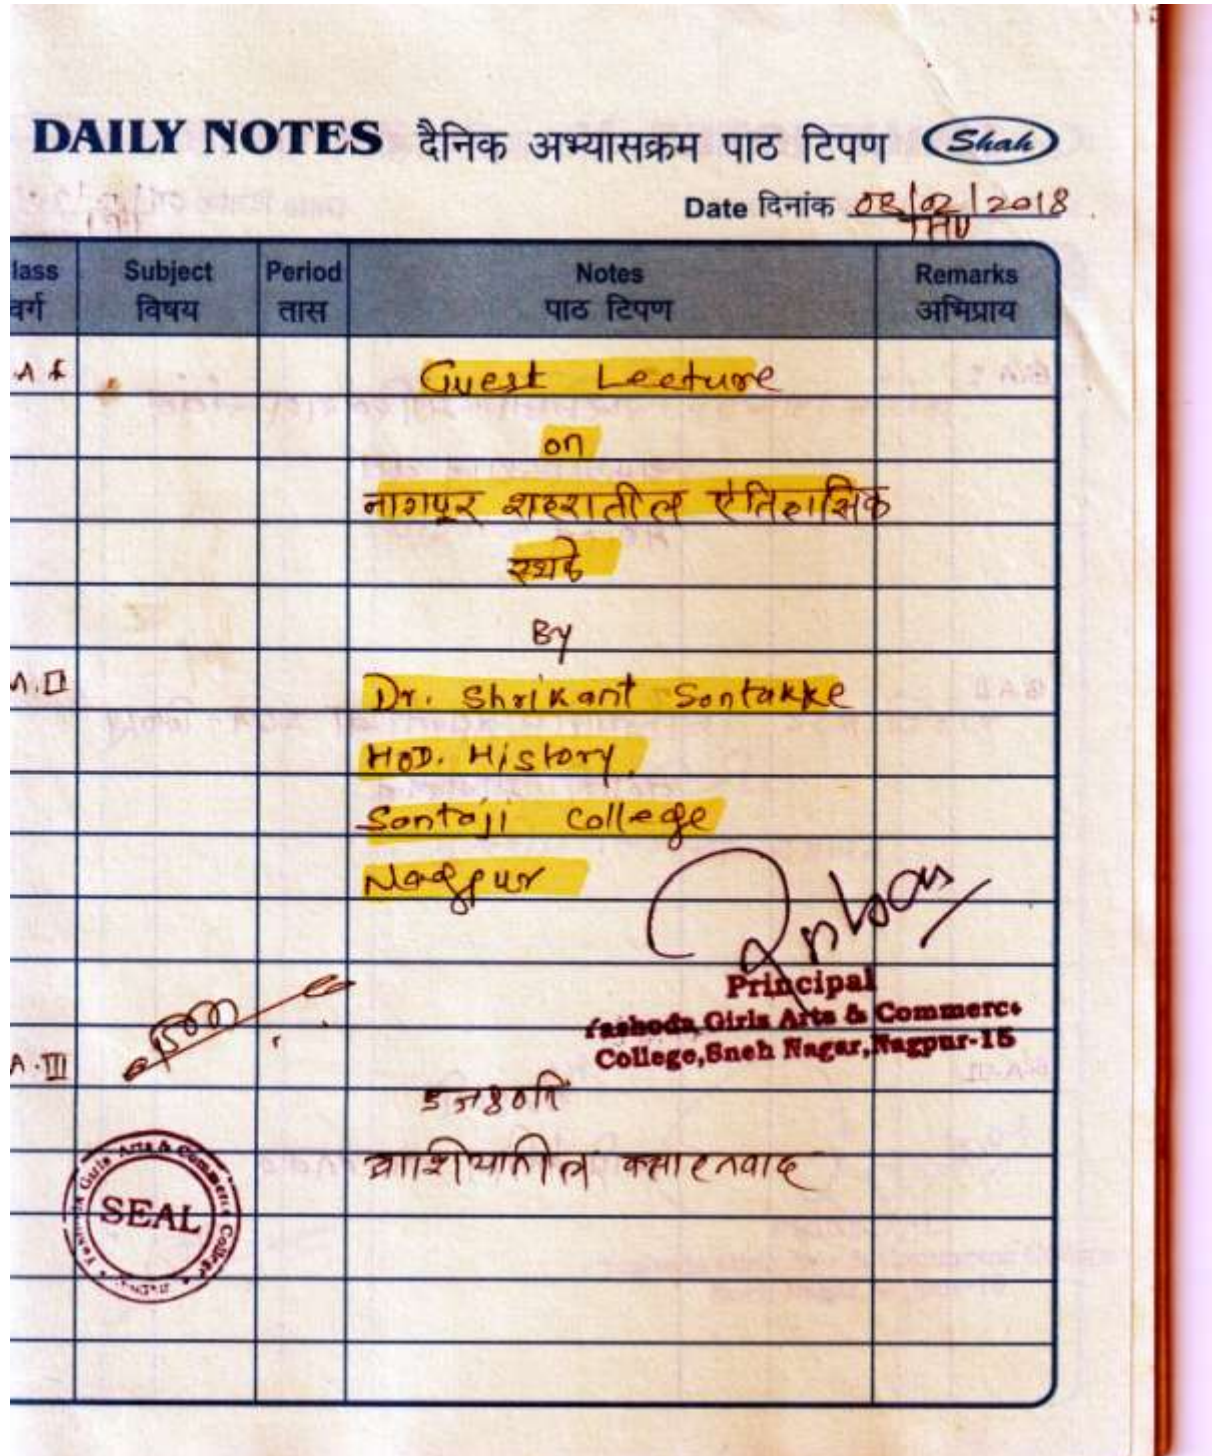 DAILY NOTES दैनिक अभ्यासक्रम पाठ टिपण Shah
Date दिनांक 08/02/2018
THU
lass Subject Period Notes Remarks
वर्ग विषय तास पाठ टिपण अभिप्राय
A I Guest Lecture
on
नागपूर शहरातील ऐतिहासिक
स्थळे
By
A.II Dr. Shrikant Sontakke
HOD. History,
Santaji College
Nagpur
Principal
Yashoda Girls Arts & Commerce
College, Sneh Nagar, Nagpur-15
A.III
SEAL